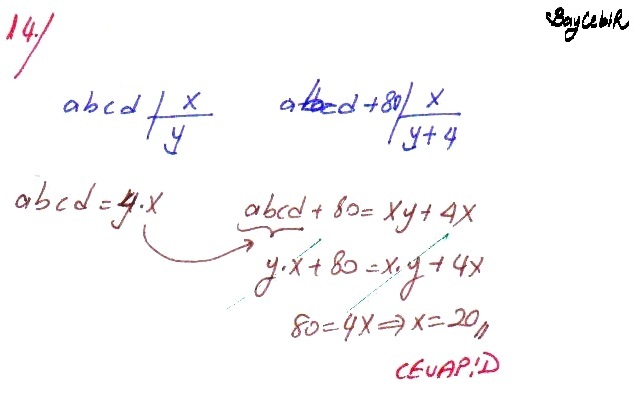 14.)
BayCebiR
abcd | x
y
abcd + 80 | x
y + 4
abcd = y.x
abcd + 80 = xy + 4x
y.x + 80 = x.y + 4x
80 = 4x ⇒ x = 20,,
CEVAP:D